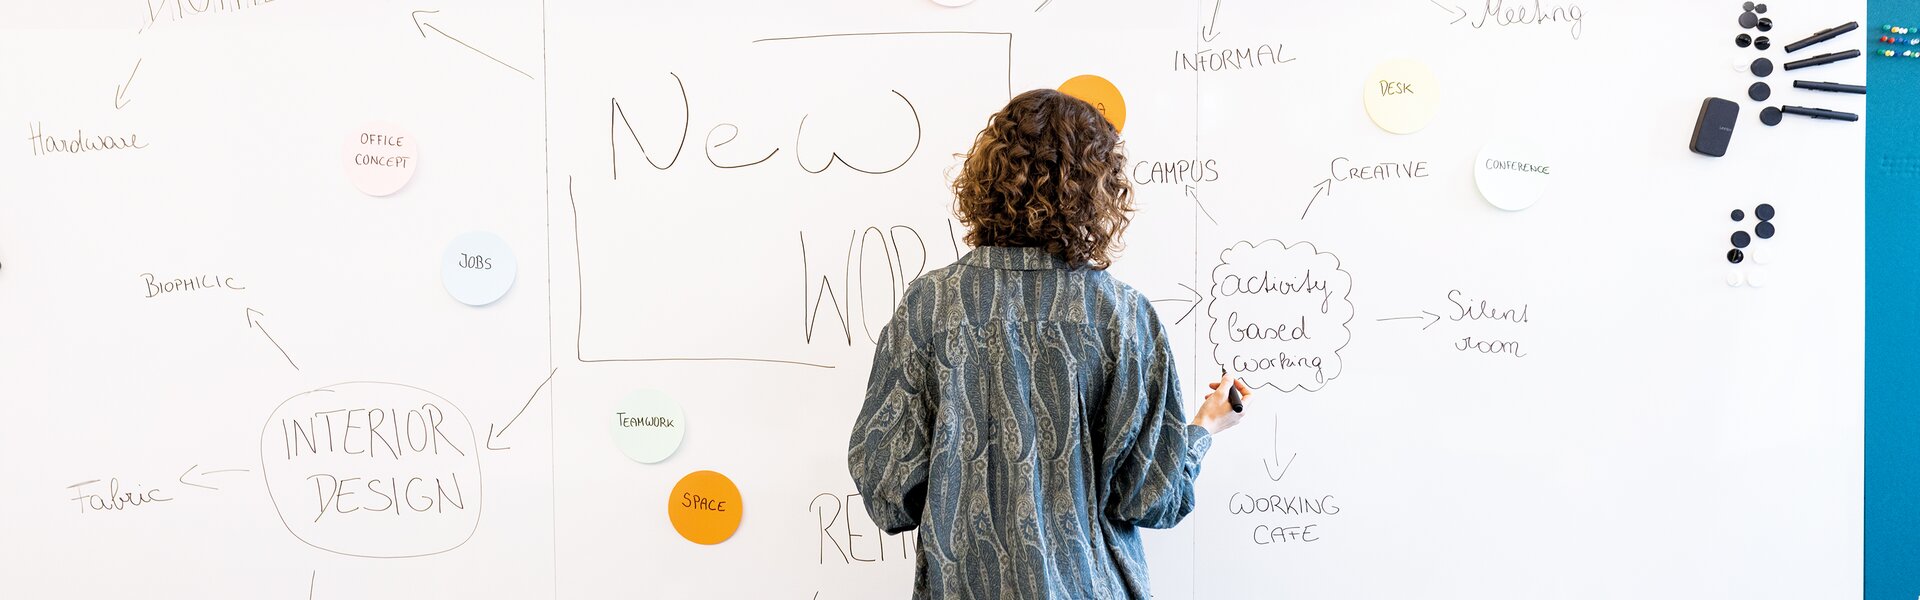 Meeting
INFORMAL
DESK
New
Hardware
OFFICE
CONCEPT
CAMPUS
CREATIVE
CONFERENCE
JOBS
BIOPHILIC
activity
based
working
Silent
room
TEAMWORK
INTERIOR
DESIGN
Fabric
SPACE
WORKING
CAFE